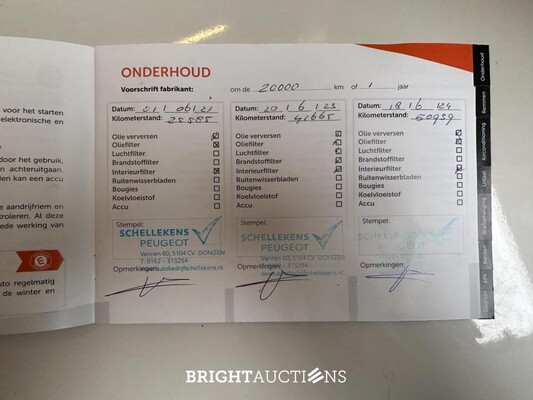 voor het starten
elektronische en
door het gebruik,
n achteruitgaan.
den kan een accu
e aandrijfriem en
troleren. Al deze
ede werking van
uto regelmatig
de winter en
ONDERHOUD
Voorschrift fabrikant: om de 20000 km of 1 jaar
Datum: 01 / 06 / 21
Kilometerstand: 25585
Olie verversen
Oliefilter
Luchtfilter
Brandstoffilter
Interieurfilter
Ruitenwisserbladen
Bougies
Koelvloeistof
Accu
Stempel:
SCHELLEKENS
PEUGEOT
Vennen 60, 5104 CV DONGEN
T: 0162 - 315254
Opmerkingen:
Datum: 20 / 6 / 23
Kilometerstand: 41665
Olie verversen
Oliefilter
Luchtfilter
Brandstoffilter
Interieurfilter
Ruitenwisserbladen
Bougies
Koelvloeistof
Accu
Stempel:
SCHELLEKENS
PEUGEOT
Vennen 60, 5104 CV DONGEN
T: 0162 - 315254
Opmerkingen:
Datum: 18 / 6 / 24
Kilometerstand: 50939
Olie verversen
Oliefilter
Luchtfilter
Brandstoffilter
Interieurfilter
Ruitenwisserbladen
Bougies
Koelvloeistof
Accu
Stempel:
Opmerkingen:
Onderhoud
Remmen
Airconditioning
Uitlaat
Banden
APK
BRIGHTAUCTIONS